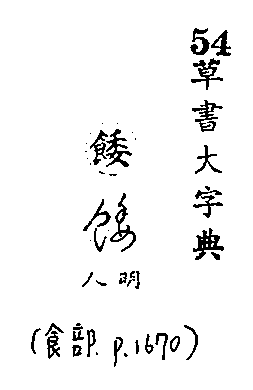 54
草書大字典
餧
餧
明人
(食部. p.1670)